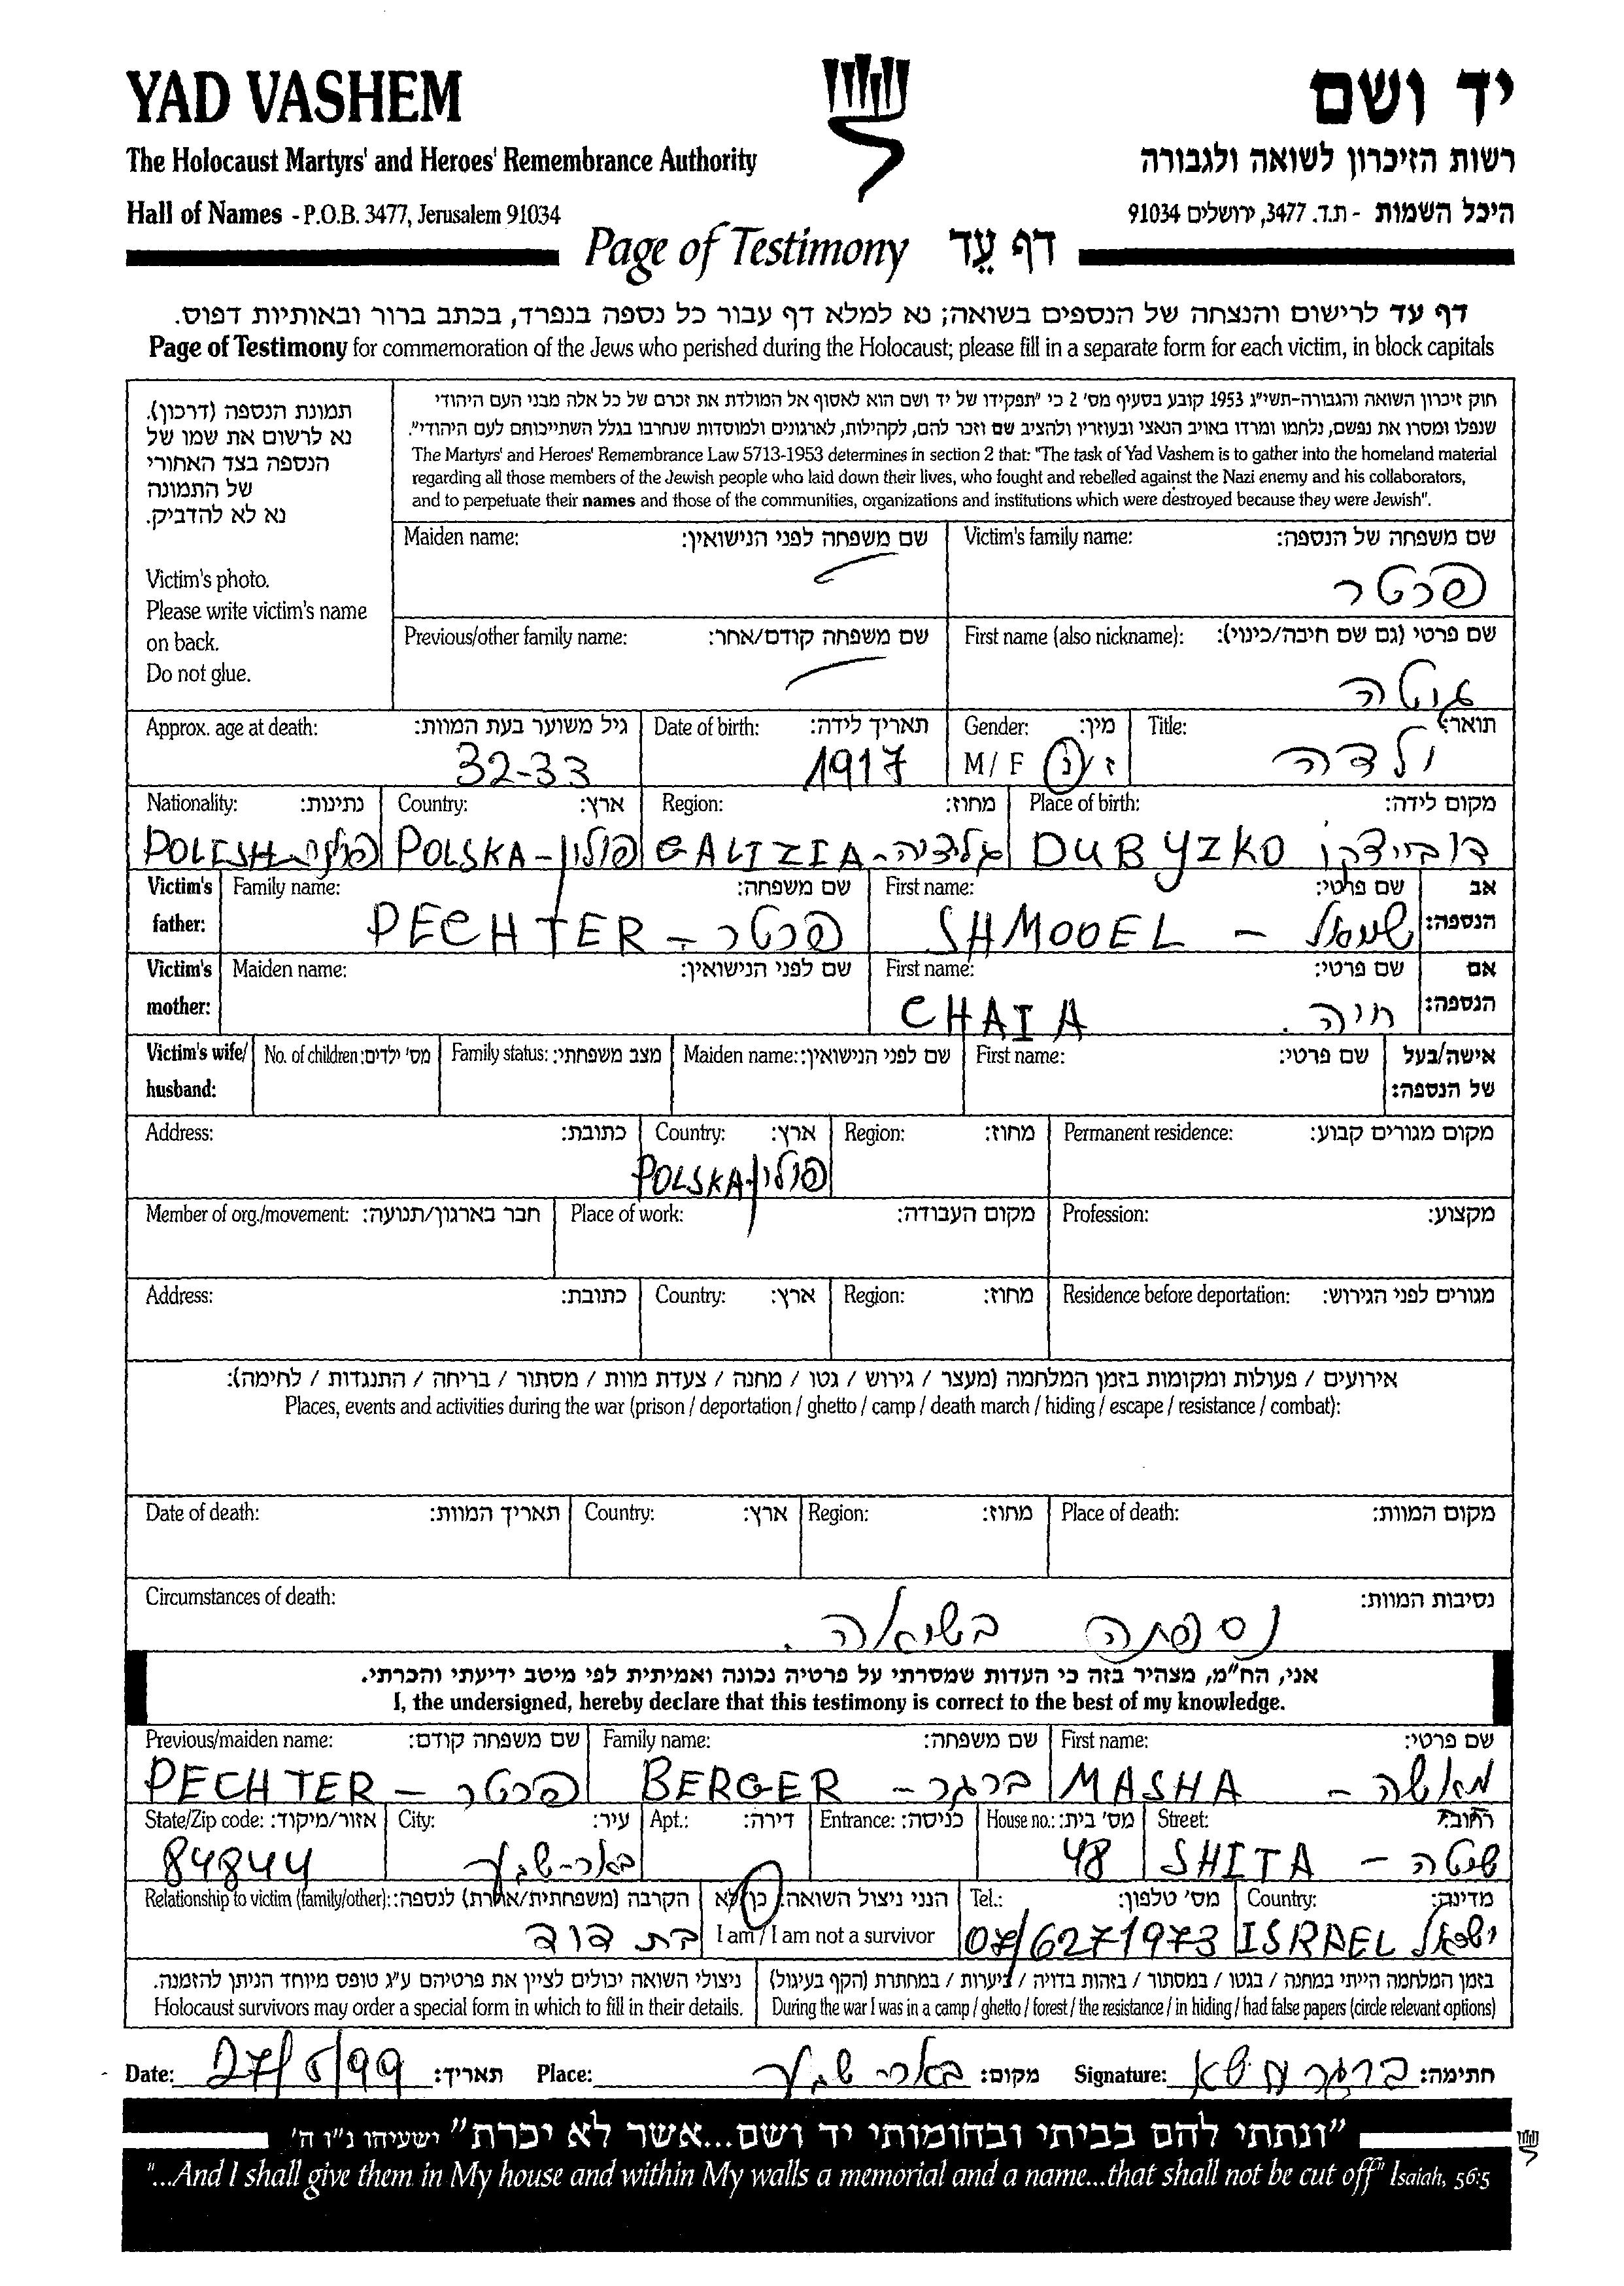 YAD VASHEM יד ושם
The Holocaust Martyrs' and Heroes' Remembrance Authority רשות הזיכרון לשואה ולגבורה
Hall of Names - P.O.B. 3477, Jerusalem 91034 היכל השמות - ת.ד. 3477, ירושלים 91034
Page of Testimony דף עֵד
דף עד לרישום והנצחה של הנספים בשואה; נא למלא דף עבור כל נספה בנפרד, בכתב ברור ובאותיות דפוס.
Page of Testimony for commemoration of the Jews who perished during the Holocaust; please fill in a separate form for each victim, in block capitals
תמונת הנספה (דרכון).
נא לרשום את שמו של
הנספה בצד האחורי
של התמונה
נא לא להדביק.
Victim's photo.
Please write victim's name
on back.
Do not glue.
חוק זיכרון השואה והגבורה-תשי"ג 1953 קובע בסעיף מס' 2 כי "תפקידו של יד ושם הוא לאסוף אל המולדת את זכרם של כל אלה מבני העם היהודי
שנפלו ומסרו את נפשם, נלחמו ומרדו באויב הנאצי ובעוזריו ולהציב שם וזכר להם, לקהילות, לארגונים ולמוסדות שנחרבו בגלל השתייכותם לעם היהודי".
The Martyrs' and Heroes' Remembrance Law 5713-1953 determines in section 2 that: "The task of Yad Vashem is to gather into the homeland material
regarding all those members of the Jewish people who laid down their lives, who fought and rebelled against the Nazi enemy and his collaborators,
and to perpetuate their names and those of the communities, organizations and institutions which were destroyed because they were Jewish".
Maiden name: שם משפחה לפני הנישואין: Victim's family name: שם משפחה של הנספה:
פכטר
Previous/other family name: שם משפחה קודם/אחר: First name (also nickname): שם פרטי (גם שם חיבה/כינוי):
גוטה
Approx. age at death: גיל משוער בעת המוות: Date of birth: תאריך לידה: Gender: מין: Title: תואר:
32-33 1917 M / F ז / נ ילדה
Nationality: נתינות: Country: ארץ: Region: מחוז: Place of birth: מקום לידה:
POLISH- POLSKA - פולין GALIZIA - גליציה DUBYZKO דובייצקו
Victim's Family name: שם משפחה: First name: שם פרטי: אב
father: PECHTER - פכטר SHMOOEL - שמואל הנספה:
Victim's Maiden name: שם לפני הנישואין: First name: שם פרטי: אם
mother: CHAIA חיה. הנספה:
Victim's wife/ No. of children: מס' ילדים: Family status: מצב משפחתי: Maiden name: שם לפני הנישואין: First name: שם פרטי: אישה/בעל
husband: של הנספה:
Address: כתובת: Country: ארץ: Region: מחוז: Permanent residence: מקום מגורים קבוע:
POLSKA - פולין
Member of org./movement: חבר בארגון/תנועה: Place of work: מקום העבודה: Profession: מקצוע:
Address: כתובת: Country: ארץ: Region: מחוז: Residence before deportation: מגורים לפני הגירוש:
אירועים / פעולות ומקומות בזמן המלחמה (מעצר / גירוש / גטו / מחנה / צעדת מוות / מסתור / בריחה / התנגדות / לחימה):
Places, events and activities during the war (prison / deportation / ghetto / camp / death march / hiding / escape / resistance / combat):
Date of death: תאריך המוות: Country: ארץ: Region: מחוז: Place of death: מקום המוות:
Circumstances of death: נסיבות המוות:
נספתה בשואה.
אני, הח"מ, מצהיר בזה כי העדות שמסרתי על פרטיה נכונה ואמיתית לפי מיטב ידיעתי והכרתי.
I, the undersigned, hereby declare that this testimony is correct to the best of my knowledge.
Previous/maiden name: שם משפחה קודם: Family name: שם משפחה: First name: שם פרטי:
PECHTER - פכטר BERGER - ברגר MASHA - מאשה
State/Zip code: אזור/מיקוד: City: עיר: Apt.: דירה: Entrance: כניסה: House no.: מס' בית: Street: רחוב:
84844 באר-שבע 48 SHITA - שיטה
Relationship to victim (family/other): הקרבה (משפחתית/אחרת) לנספה: הנני ניצול השואה: כן/לא Tel.: מס' טלפון: Country: מדינה:
בת דוד I am / I am not a survivor 07/6271973 ISRAEL ישראל
ניצולי השואה יכולים לציין את פרטיהם ע"ג טופס מיוחד הניתן להזמנה. בזמן המלחמה הייתי במחנה / בגטו / במסתור / בזהות בדויה / ביערות / במחתרת (הקף בעיגול)
Holocaust survivors may order a special form in which to fill in their details. During the war I was in a camp / ghetto / forest / the resistance / in hiding / had false papers (circle relevant options)
Date: 27/5/99 תאריך: Place: באר שבע מקום: Signature: ברגר משא חתימה:
"ונתתי להם בביתי ובחומותי יד ושם...אשר לא יכרת" ישעיהו נ"ו ה'
"...And I shall give them in My house and within My walls a memorial and a name...that shall not be cut off" Isaiah, 56:5